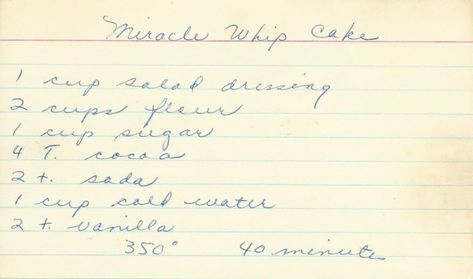 Miracle Whip Cake
1 cup salad dressing
2 cups flour
1 cup sugar
4 T. cocoa
2 t. soda
1 cup cold water
2 t. vanilla
350° 40 minute